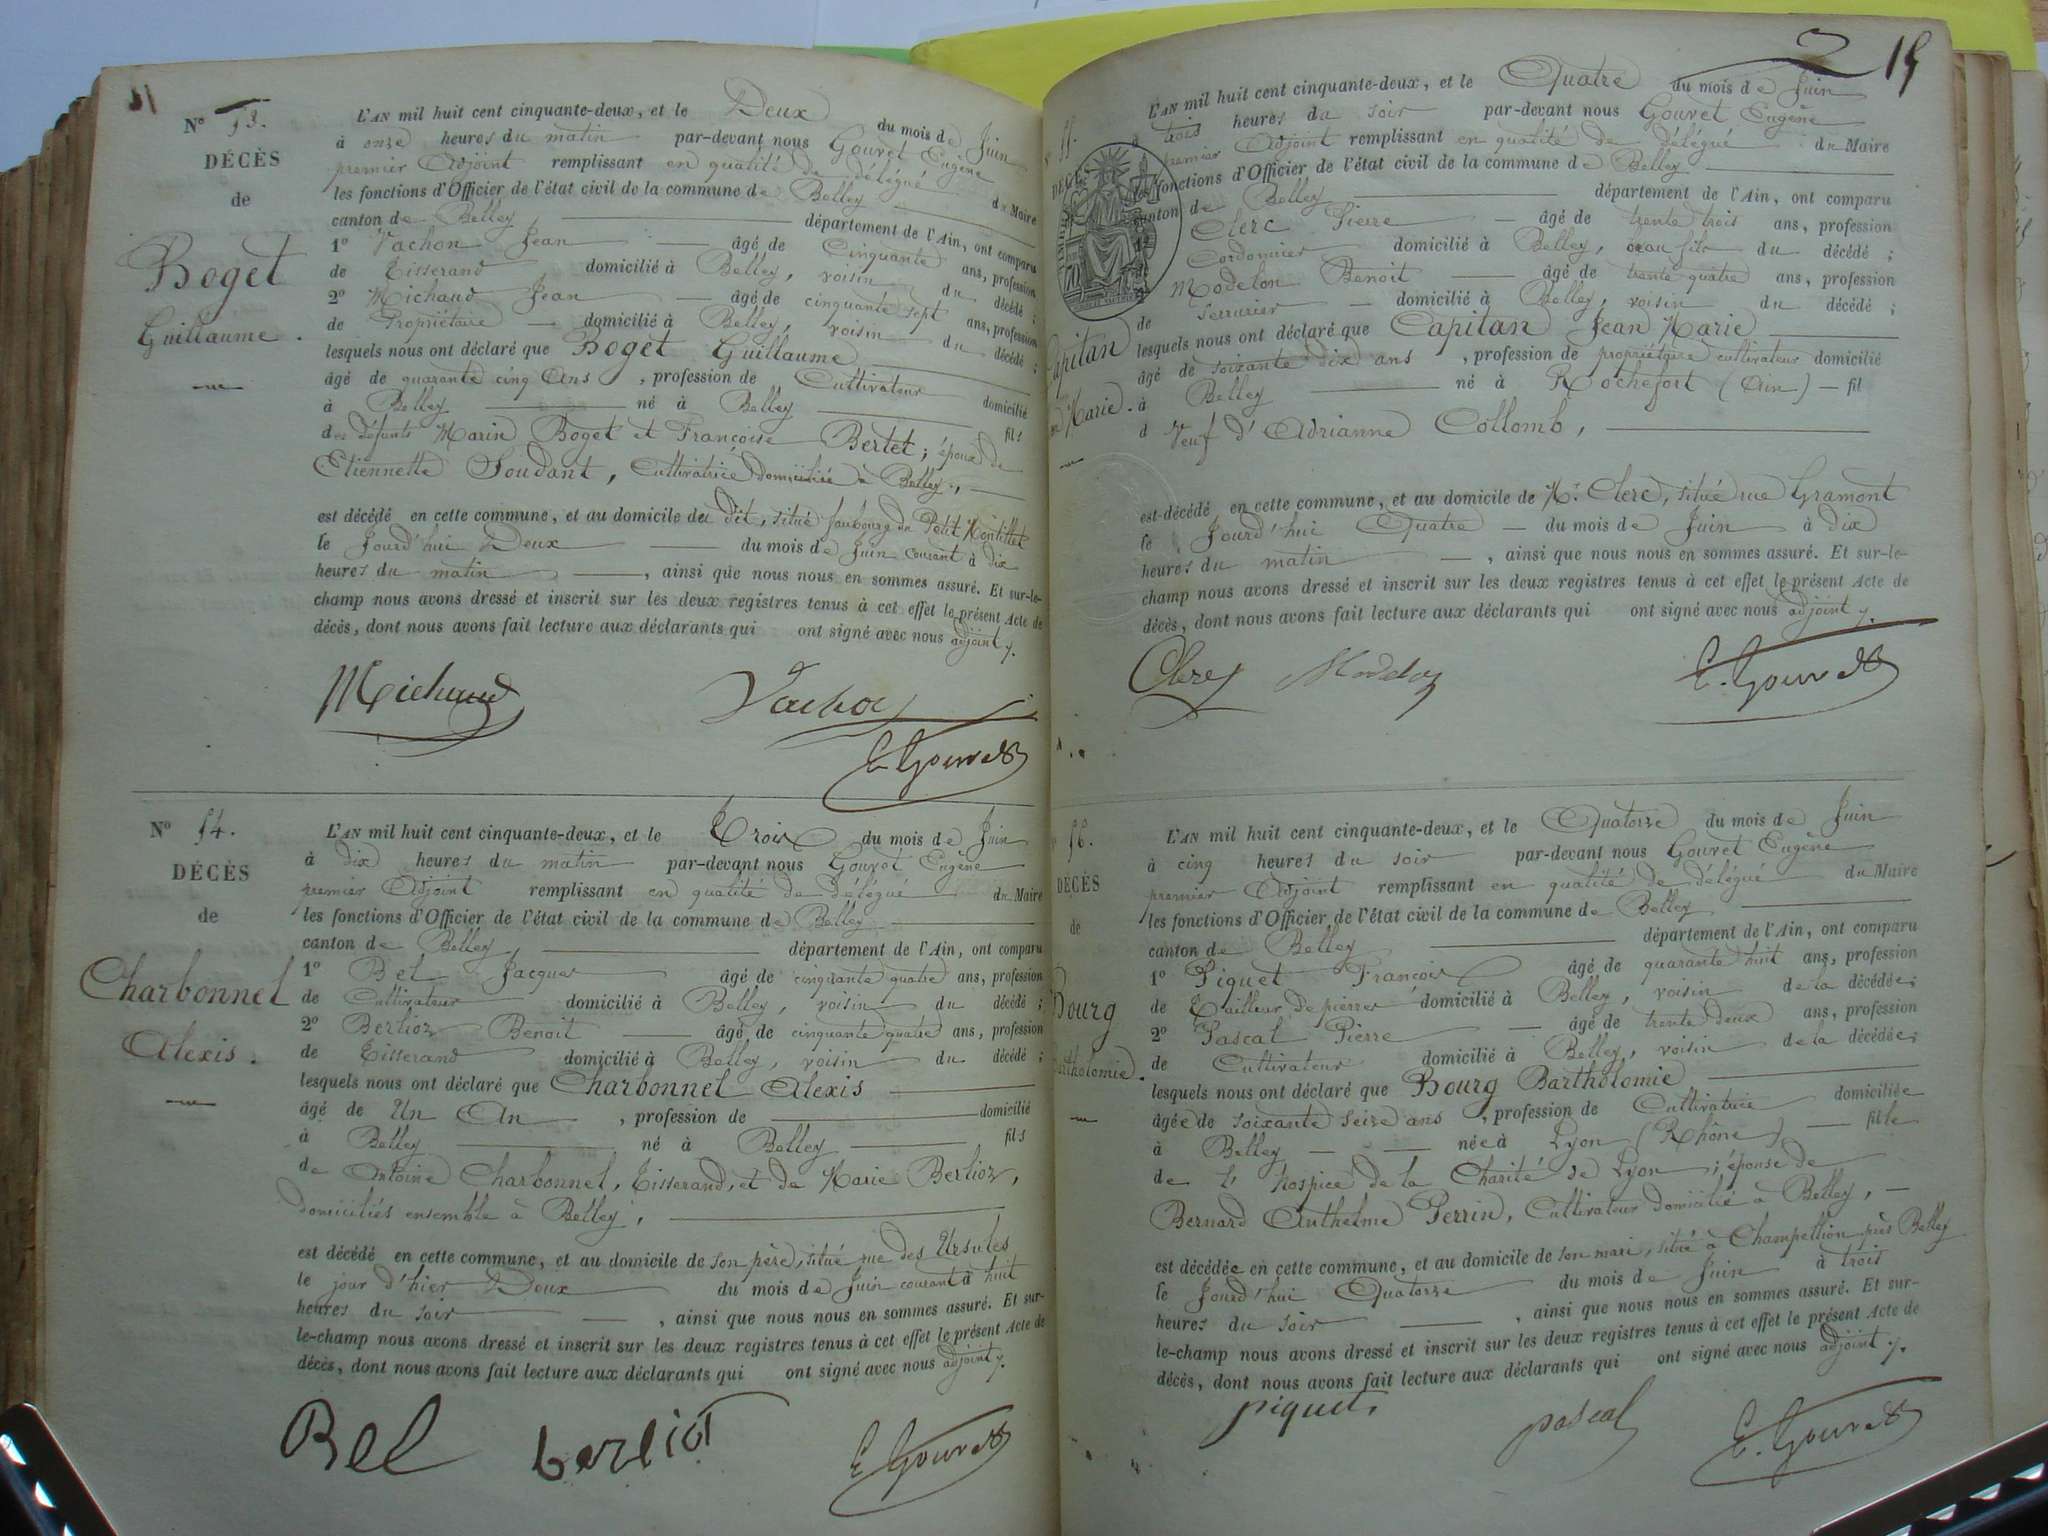 Nº 53.
DÉCÈS
de
Boget
Guillaume.
L'AN mil huit cent cinquante-deux, et le Deux du mois de Juin
à onze heures du matin par-devant nous Gouvet Eugène
premier Adjoint remplissant en qualité de délégué du Maire
les fonctions d'Officier de l'état civil de la commune de Belley
canton de Belley département de l'Ain, ont comparu
1º Vachon Jean âgé de Cinquante ans, profession
de Tisserand domicilié à Belley, voisin du décédé ;
2º Michaud Jean âgé de cinquante sept ans, profession
de Propriétaire domicilié à Belley, voisin du décédé ;
lesquels nous ont déclaré que Boget Guillaume
âgé de quarante cinq ans, profession de Cultivateur domicilié
à Belley né à Belley fils
des défunts Marin Boget et Françoise Bertet ; époux de
Etiennette Soudant, Cultivatrice domiciliée à Belley,
est décédé en cette commune, et au domicile du dit, situé faubourg du Petit Montillet
le Jourd'hui Deux du mois de Juin courant à dix
heures du matin, ainsi que nous nous en sommes assuré. Et sur-le-
champ nous avons dressé et inscrit sur les deux registres tenus à cet effet le présent Acte de
décès, dont nous avons fait lecture aux déclarants qui ont signé avec nous adjoint
Michaud Vachon
E. Gouvet
Nº 54.
DÉCÈS
de
Charbonnel
Alexis.
L'AN mil huit cent cinquante-deux, et le Trois du mois de Juin
à dix heures du matin par-devant nous Gouvet Eugène
premier Adjoint remplissant en qualité de délégué du Maire
les fonctions d'Officier de l'état civil de la commune de Belley
canton de Belley département de l'Ain, ont comparu
1º Bel Jacques âgé de cinquante quatre ans, profession
de Cultivateur domicilié à Belley, voisin du décédé ;
2º Berlioz Benoit âgé de cinquante quatre ans, profession
de Tisserand domicilié à Belley, voisin du décédé ;
lesquels nous ont déclaré que Charbonnel Alexis
âgé de Un An, profession de domicilié
à Belley né à Belley fils
de Antoine Charbonnel, Tisserand, et de Marie Berlioz,
domiciliés ensemble à Belley,
est décédé en cette commune, et au domicile de son père, situé rue des Ursules
le jour d'hier Deux du mois de Juin courant à huit
heures du soir, ainsi que nous nous en sommes assuré. Et sur-
le-champ nous avons dressé et inscrit sur les deux registres tenus à cet effet le présent Acte de
décès, dont nous avons fait lecture aux déclarants qui ont signé avec nous adjoint
Bel berlioz E. Gouvet
15
55.
DÉCÈS
Capitan
Marie.
L'AN mil huit cent cinquante-deux, et le Quatre du mois de Juin
trois heures du soir par-devant nous Gouvet Eugène
premier Adjoint remplissant en qualité de délégué du Maire
les fonctions d'Officier de l'état civil de la commune de Belley
canton de Belley département de l'Ain, ont comparu
Clerc Pierre âgé de trente trois ans, profession
Cordonnier domicilié à Belley, beau fils du décédé ;
Modelon Benoit âgé de trente quatre ans, profession
de Serrurier domicilié à Belley, voisin du décédé ;
lesquels nous ont déclaré que Capitan Jean Marie
âgé de soixante dix ans, profession de propriétaire cultivateur domicilié
à Belley né à Rochefort (Ain) fil
d Veuf d'Adrianne Collomb,
est décédé en cette commune, et au domicile de Mr. Clerc, situé rue Gramont
le Jourd'hui Quatre du mois de Juin à dix
heures du matin, ainsi que nous nous en sommes assuré. Et sur-le-
champ nous avons dressé et inscrit sur les deux registres tenus à cet effet le présent Acte de
décès, dont nous avons fait lecture aux déclarants qui ont signé avec nous adjoint
Clerc Modelon E. Gouvet
56.
DÉCÈS
de
Bourg
Bartholomie.
L'AN mil huit cent cinquante-deux, et le Quatorze du mois de Juin
à cinq heures du soir par-devant nous Gouvet Eugène
premier Adjoint remplissant en qualité de délégué du Maire
les fonctions d'Officier de l'état civil de la commune de Belley
canton de Belley département de l'Ain, ont comparu
1º Piquet François âgé de quarante huit ans, profession
de Tailleur de pierres domicilié à Belley, voisin de la décédée ;
2º Pascal Pierre âgé de trente deux ans, profession
de Cultivateur domicilié à Belley, voisin de la décédée ;
lesquels nous ont déclaré que Bourg Bartholomie
âgée de soixante seize ans, profession de Cultivatrice domiciliée
à Belley née à Lyon (Rhône) fille
de l'hospice de la Charité de Lyon ; épouse de
Bernard Anthelme Perrin, Cultivateur domicilié à Belley,
est décédée en cette commune, et au domicile de son mari, situé à Champeillon près Belley
le Jourd'hui Quatorze du mois de Juin à trois
heures du soir, ainsi que nous nous en sommes assuré. Et sur-
le-champ nous avons dressé et inscrit sur les deux registres tenus à cet effet le présent Acte de
décès, dont nous avons fait lecture aux déclarants qui ont signé avec nous adjoint
piquet pascal E. Gouvet